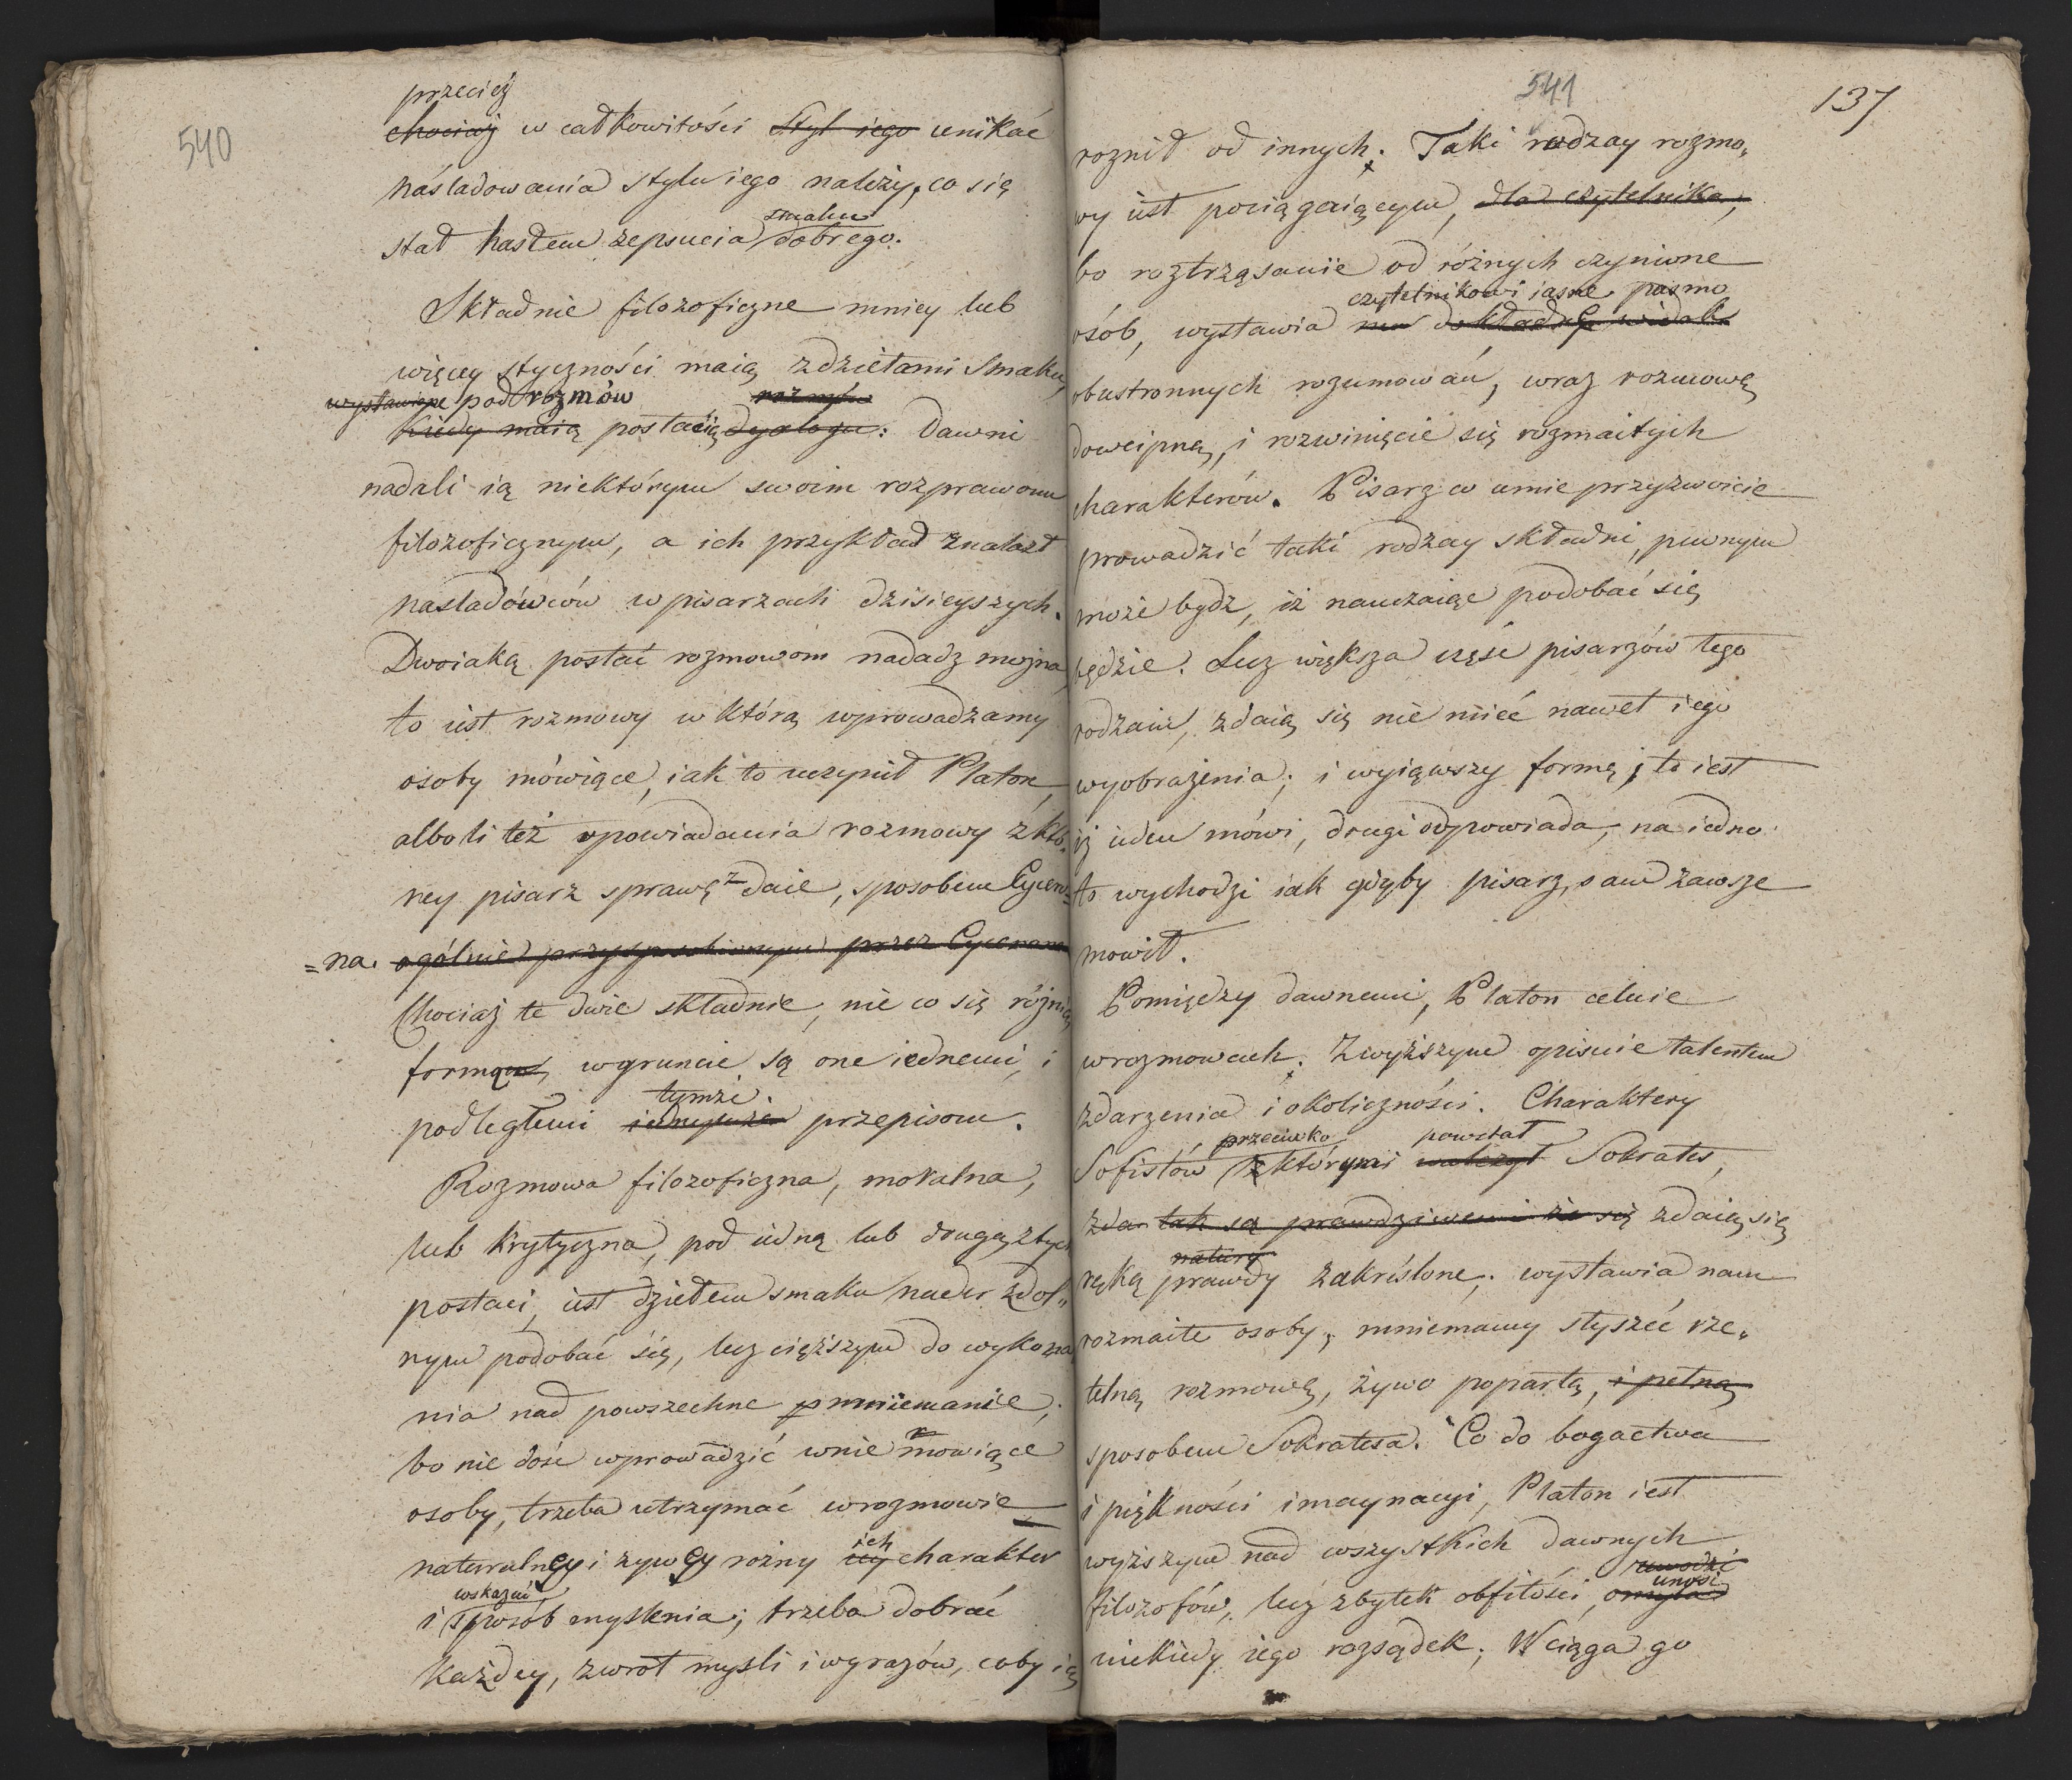 540
przeciéż
chociaż w całkowitości Styl iego unikać
náśladowania stylu iego należy, co się
smaku
stał hasłem zepsucia dobrego.
Składnie filozoficzne mniey lub
więcey styczności maią z dziełami Smaku,
wystawione pod rozmów rozmów
kiedy maią postacią dyalogu: Dawni
nadali ią niektórym swoim rozprawom
filozoficznym, a ich przykład znalazł
nasladówców w pisarzach dzisieyszych.
Dwoiaką postać rozmowom nadadz można,
to iest rozmowy w którą wprowadzamy
osoby mówiące, iak to uczynił Platon,
albo li też opowiadania rozmowy z któ„
rey pisarz sprawę zdaie, sposobem Cycero=
=na. ogólnie przysposobionym przez Cycerona
Chociaż te dwie składnie, nie co się różnią
formą, w gruncie są one iednemi, i
tymże.
podległemi iednymże przepisom.
Rozmowa filozoficzna, moralna,
lub krytyczna, pod iedną lub drugą z tych
postaci, iest dziełem smaku nader zdol„
nym podobać się, lecz cięższym do wykona
nia nad powszechne mniemanie;
bo nie dość wprowadzić w nie mowiące
osoby, trzeba utrzymać w rozmowie
ich
naturalney i żywey rożny charakter
wskazać
i sposób myslenia; trzeba dobrać
każdey, zwrot mysli i wyrazów, coby ią
541
137
roznił od innych. Taki rodzay rozmo„
wy iest pociągaiącym, dla czytelnika,
bo roztrząsanie od różnych czynione
czytelnikowi iasne pasmo
osób, wystawia nam dokładny widok
obustronnych rozumowań, wraz rozmowę
dowcipną, i rozwinięcie się rozmaitych
charakterów. Pisarz co umie przyzwoicie
prowadzić taki rodzay składni, pewnym
może bydz, iż nauczaiąc podobać się
będzie. Lecz większa część pisarzów tego
rodzaiu, zdaią się nie mieć nawet iego
wyobrażenia; i wyiąwszy formę, to iest
iż ieden mówi, drugi odpowiada, na iedno
to wychodzi iak gdyby pisarz, sam zawsze
mowił.
Pomiędzy dawnemi, Platon celuie
w rozmowach. Z wyższym opisuie talentem
zdarzenia i okoliczności. Charaktery
przeciwko powstał
Sofistów z którymi walczył Sokrates,
zda tak są prawdziwemi że się zdaią się
natury
ręką prawdy zakréślone; wystawia nam
rozmaite osoby, mniemamy słyszéć rze„
telną rozmowę, żywo popartą, i pełną
sposobem Sokratesa. Co do bogactwa
i piękności imaynacyi, Platon iest
wyższym nad wszystkich dawnych
uwodzi
unosi
filozofów, lecz zbytek obfitości, omyla
niekiedy iego rozsądek; Wciąga go